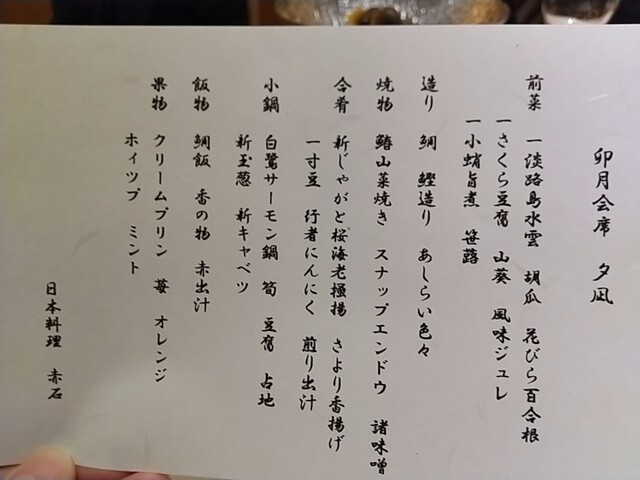 卯月会席 夕凪
前菜 一淡路島水雲 胡瓜 花びら百合根
一さくら豆腐 山葵 風味ジュレ
一小蛸旨煮 笹蕗
造り 鯛 鰹造り あしらい色々
焼物 鰆山菜焼き スナップエンドウ 諸味噌
合肴 新じゃがと桜海老掻揚 さより香揚げ
一寸豆 行者にんにく 煎り出汁
小鍋 白鷺サーモン鍋 筍 豆腐 占地
新玉葱 新キャベツ
飯物 鯛飯 香の物 赤出汁
果物 クリームプリン 苺 オレンジ
ホイップ ミント
日本料理 赤石